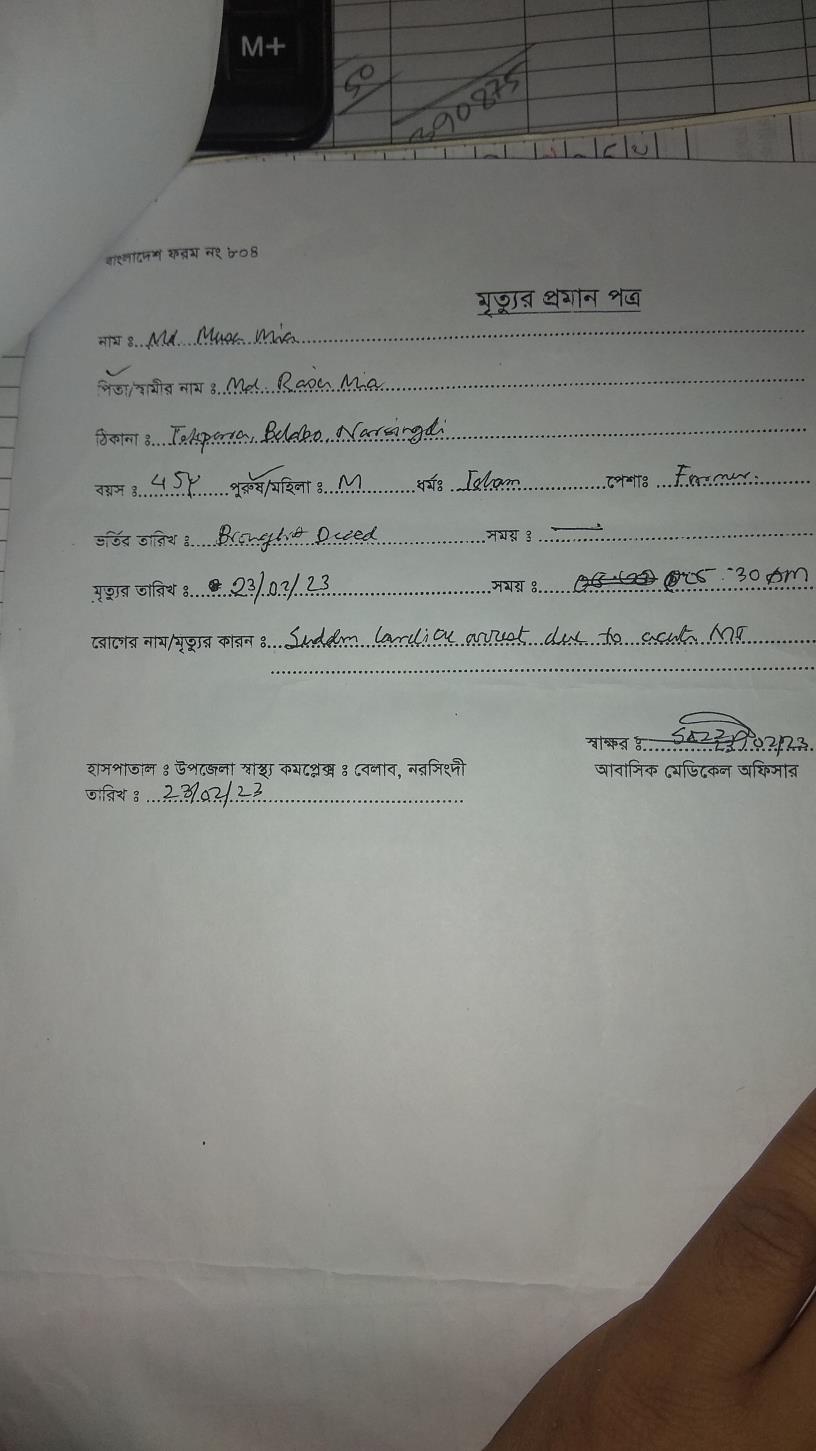 M+
390875
বাংলাদেশ ফরম নং ৮০৪
মৃত্যুর প্রমান পত্র
নাম ঃ Md. Musa Mia
পিতা/স্বামীর নাম ঃ Md. Mia
ঠিকানা ঃ Belabo, Narsingdi
বয়স ঃ 45Y পুরুষ/মহিলা ঃ M ধর্মঃ Islam পেশাঃ Farmer.
ভর্তির তারিখ ঃ Brought Dead সময় ঃ —
মৃত্যুর তারিখ ঃ 23/02/23 সময় ঃ 05:30 pm
রোগের নাম/মৃত্যুর কারন ঃ Sudden Cardiac arrest due to acute MI
স্বাক্ষর ঃ 23/02/23.
হাসপাতাল ঃ উপজেলা স্বাস্থ্য কমপ্লেক্স ঃ বেলাব, নরসিংদী আবাসিক মেডিকেল অফিসার
তারিখ ঃ 23/02/23